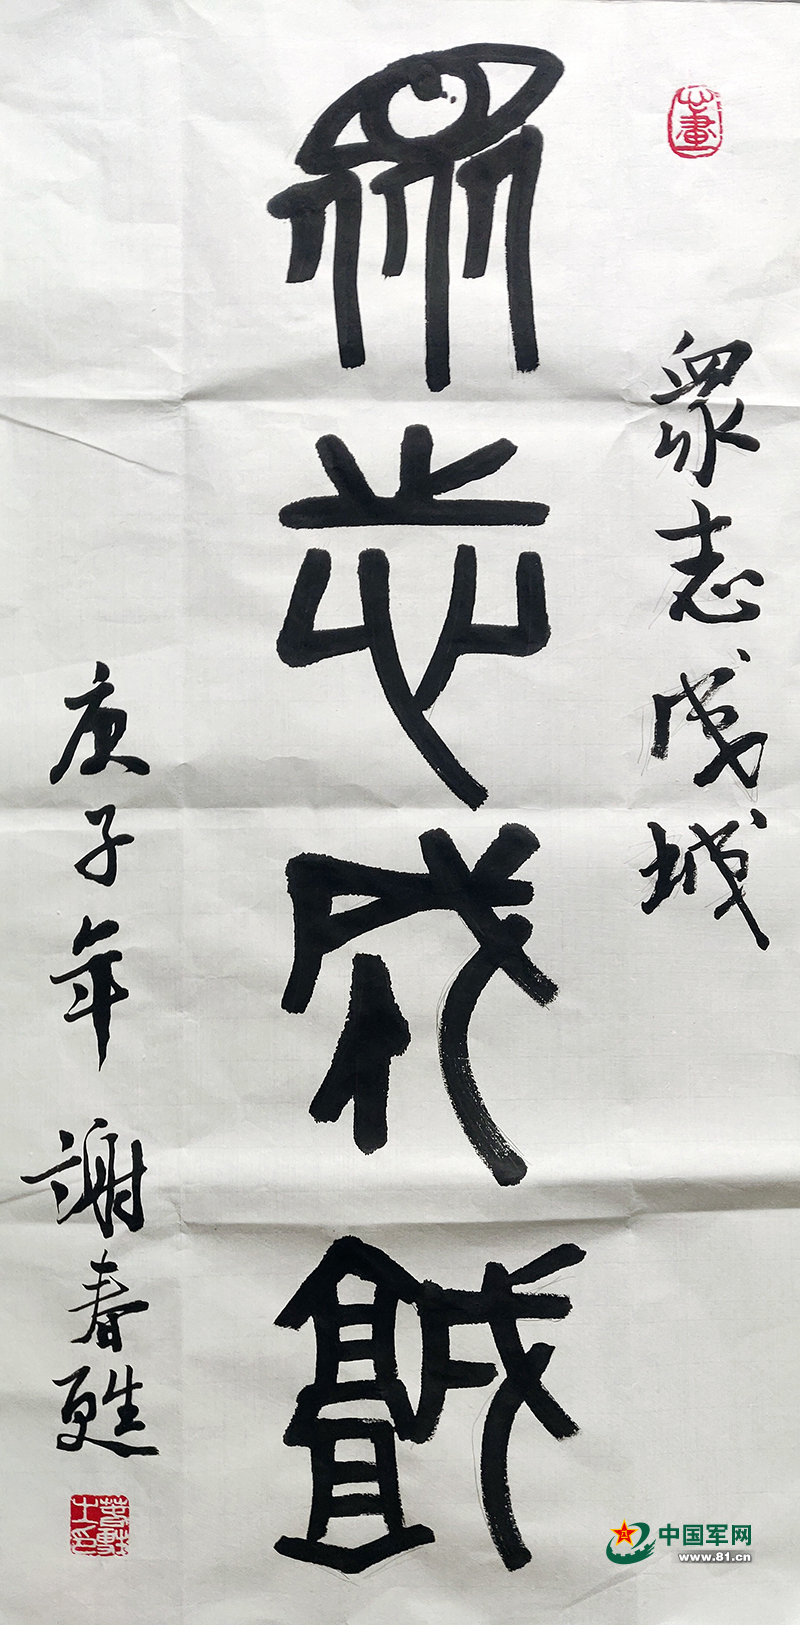 眾志成城
眾志成城
庚子年 謝春甦
中国军网
www.81.cn